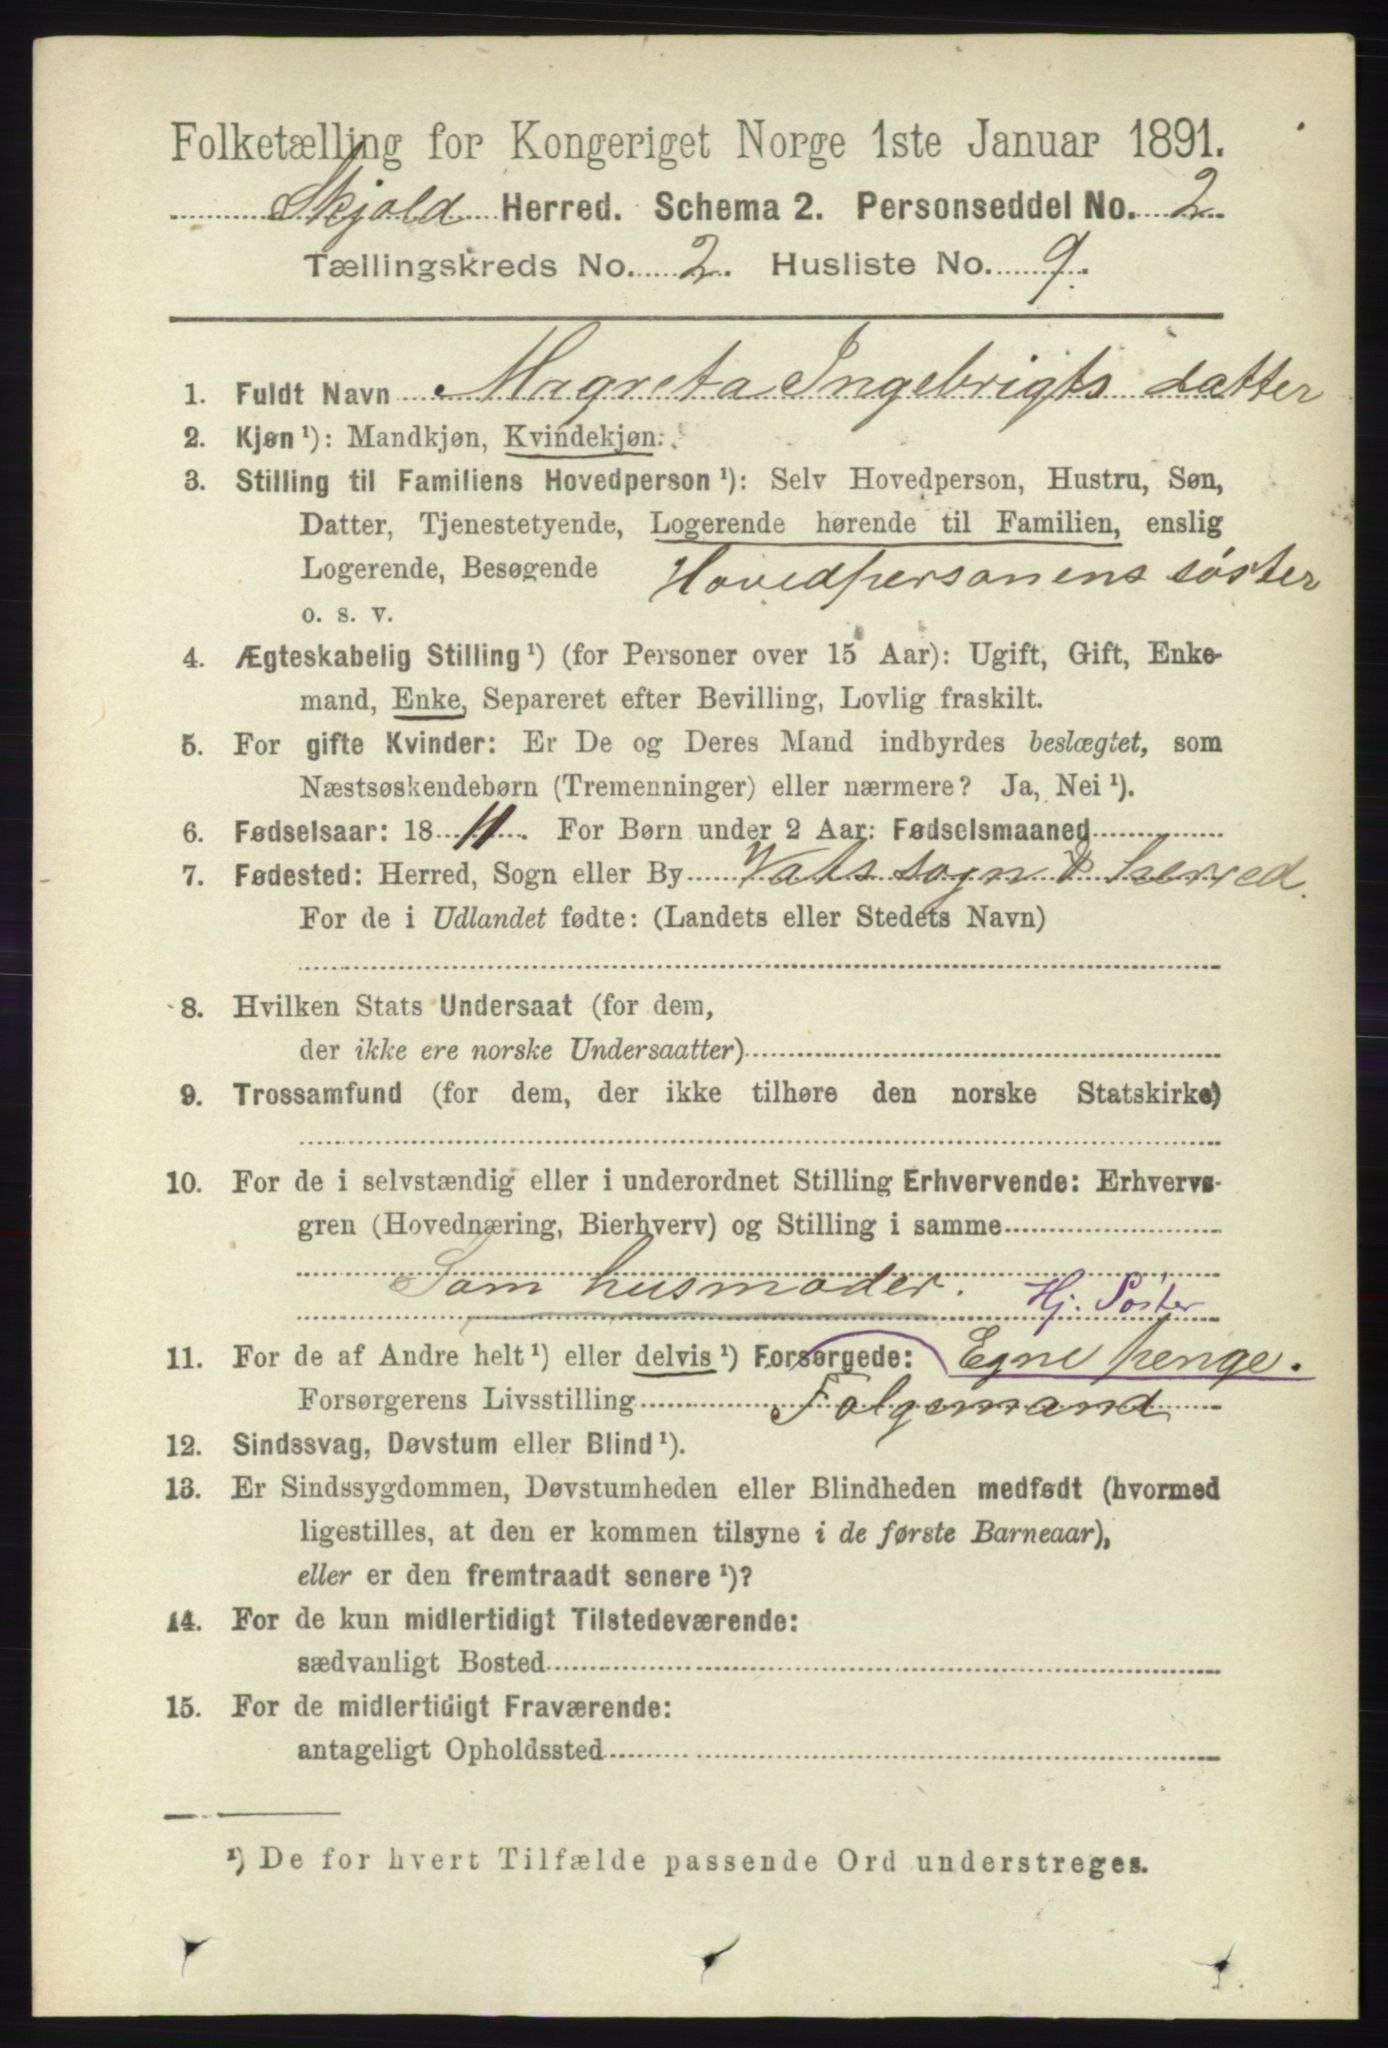 Folketælling for Kongeriget Norge 1ste Januar 1891.
Skjold Herred. Schema 2. Personseddel No. 2.
Tællingskreds No. 2. Husliste No. 9.
1. Fuldt Navn Magreta Ingebrigts datter
2. Kjøn ¹): Mandkjøn, Kvindekjøn.
3. Stilling til Familiens Hovedperson ¹): Selv Hovedperson, Hustru, Søn,
Datter, Tjenestetyende, Logerende hørende til Familien, enslig
Logerende, Besøgende Hovedpersonens søster
o. s. v.
4. Ægteskabelig Stilling ¹) (for Personer over 15 Aar): Ugift, Gift, Enke-
mand, Enke, Separeret efter Bevilling, Lovlig fraskilt.
5. For gifte Kvinder: Er De og Deres Mand indbyrdes beslægtet, som
Næstsøskendebørn (Tremenninger) eller nærmere? Ja, Nei ¹).
6. Fødselsaar: 1811. For Børn under 2 Aar: Fødselsmaaned
7. Fødested: Herred, Sogn eller By Vats sogn & herred.
For de i Udlandet fødte: (Landets eller Stedets Navn)
8. Hvilken Stats Undersaat (for dem,
der ikke ere norske Undersaatter)
9. Trossamfund (for dem, der ikke tilhøre den norske Statskirke)
10. For de i selvstændig eller i underordnet Stilling Erhvervende: Erhvervs-
gren (Hovednæring, Bierhverv) og Stilling i samme
Som husmoder. Hj. Søster
11. For de af Andre helt ¹) eller delvis ¹) Forsørgede: Egne penge.
Forsørgerens Livsstilling Folgemand
12. Sindssvag, Døvstum eller Blind ¹).
13. Er Sindssygdommen, Døvstumheden eller Blindheden medfødt (hvormed
ligestilles, at den er kommen tilsyne i de første Barneaar),
eller er den fremtraadt senere ¹)?
14. For de kun midlertidigt Tilstedeværende:
sædvanligt Bosted
15. For de midlertidigt Fraværende:
antageligt Opholdssted
¹) De for hvert Tilfælde passende Ord understreges.